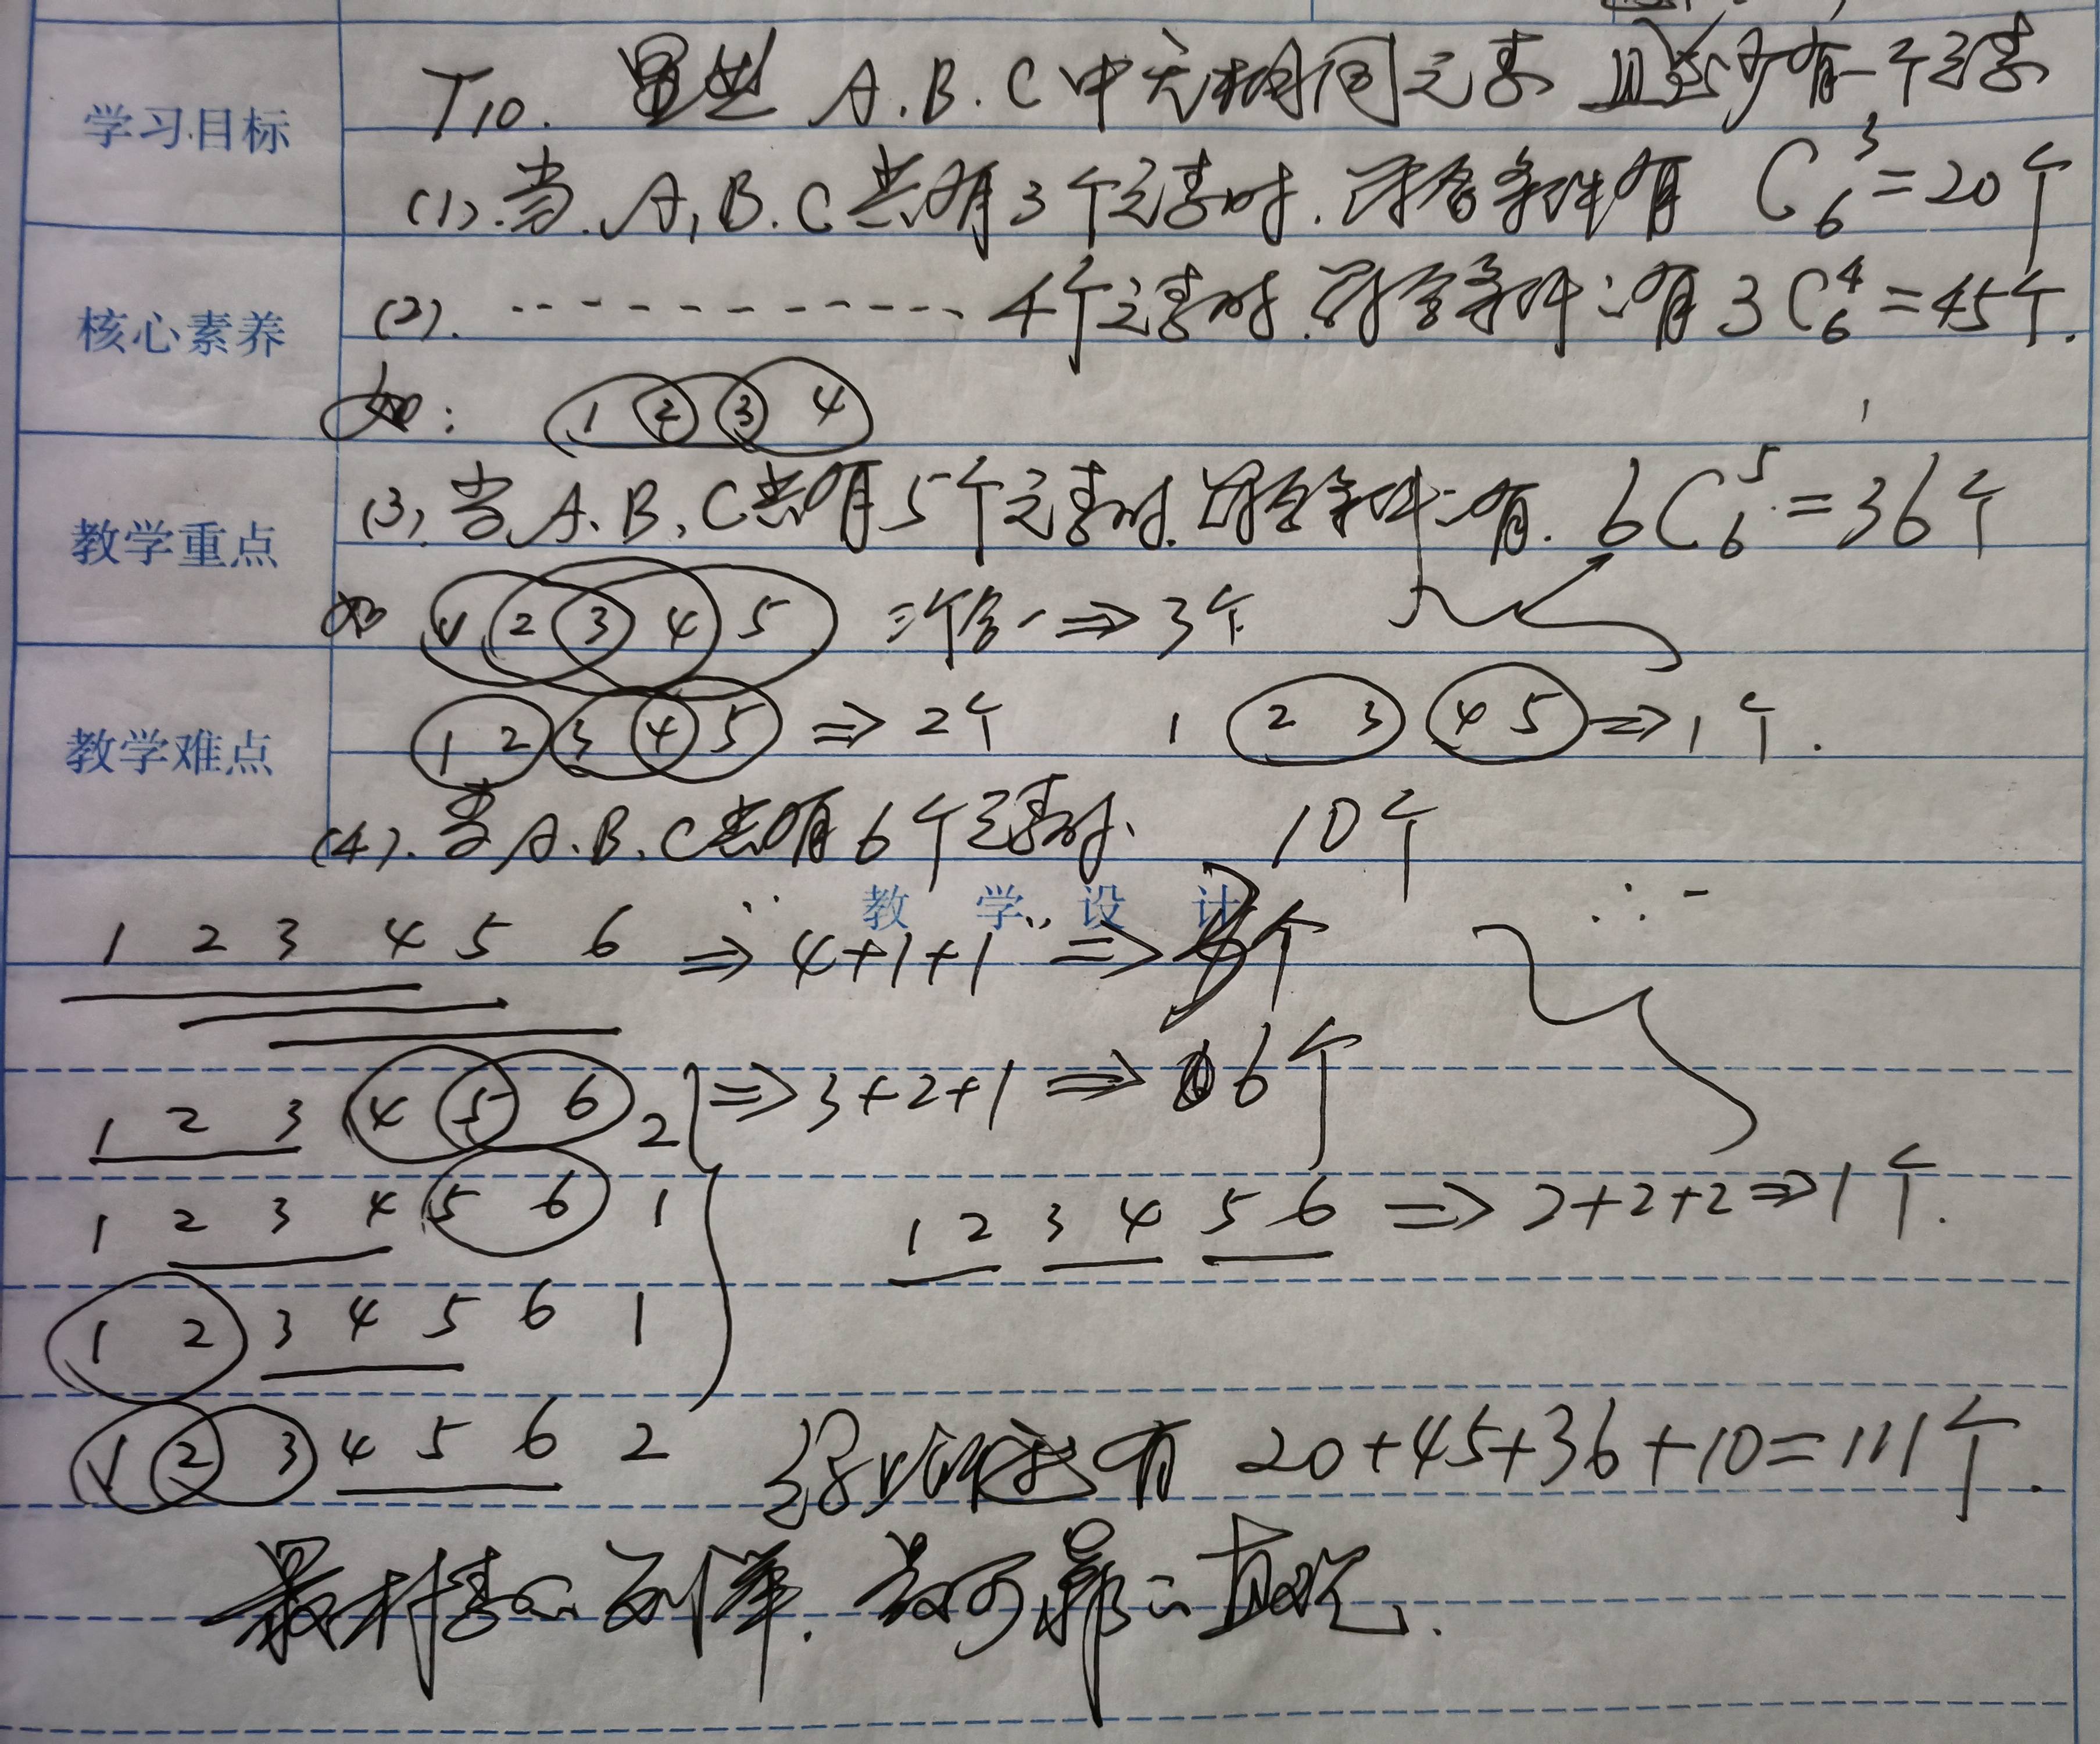 学习目标
T10. 显然 A.B.C中无相同元素 且至少有一个元素
(1).当.A,B.C共有3个元素时.符合条件有 C₆³=20个
核心素养
(2). ------------ 4个元素时.符合条件:有 3C₆⁴=45个.
如: 1 2 3 4
教学重点
(3).当A.B.C共有5个元素时.符合条件:有. 6C₆⁵=36个
如 1 2 3 4 5 三个含一⇒3个
教学难点
1 2 3 4 5 ⇒ 2个 1 2 3 4 5⇒1个.
(4).当A.B.C共有6个元素时. 10个
教学设计
1 2 3 4 5 6 ⇒ 4+1+1 ⇒ 个
1 2 3 4 5 6 2 ⇒3+2+1 ⇒ 6个
1 2 3 4 5 6 1 1 2 3 4 5 6 ⇒ 2+2+2⇒1个.
1 2 3 4 5 6 1
1 2 3 4 5 6 2 综上所述有 20+45+36+10=111个.
最朴素的列举.
直观.